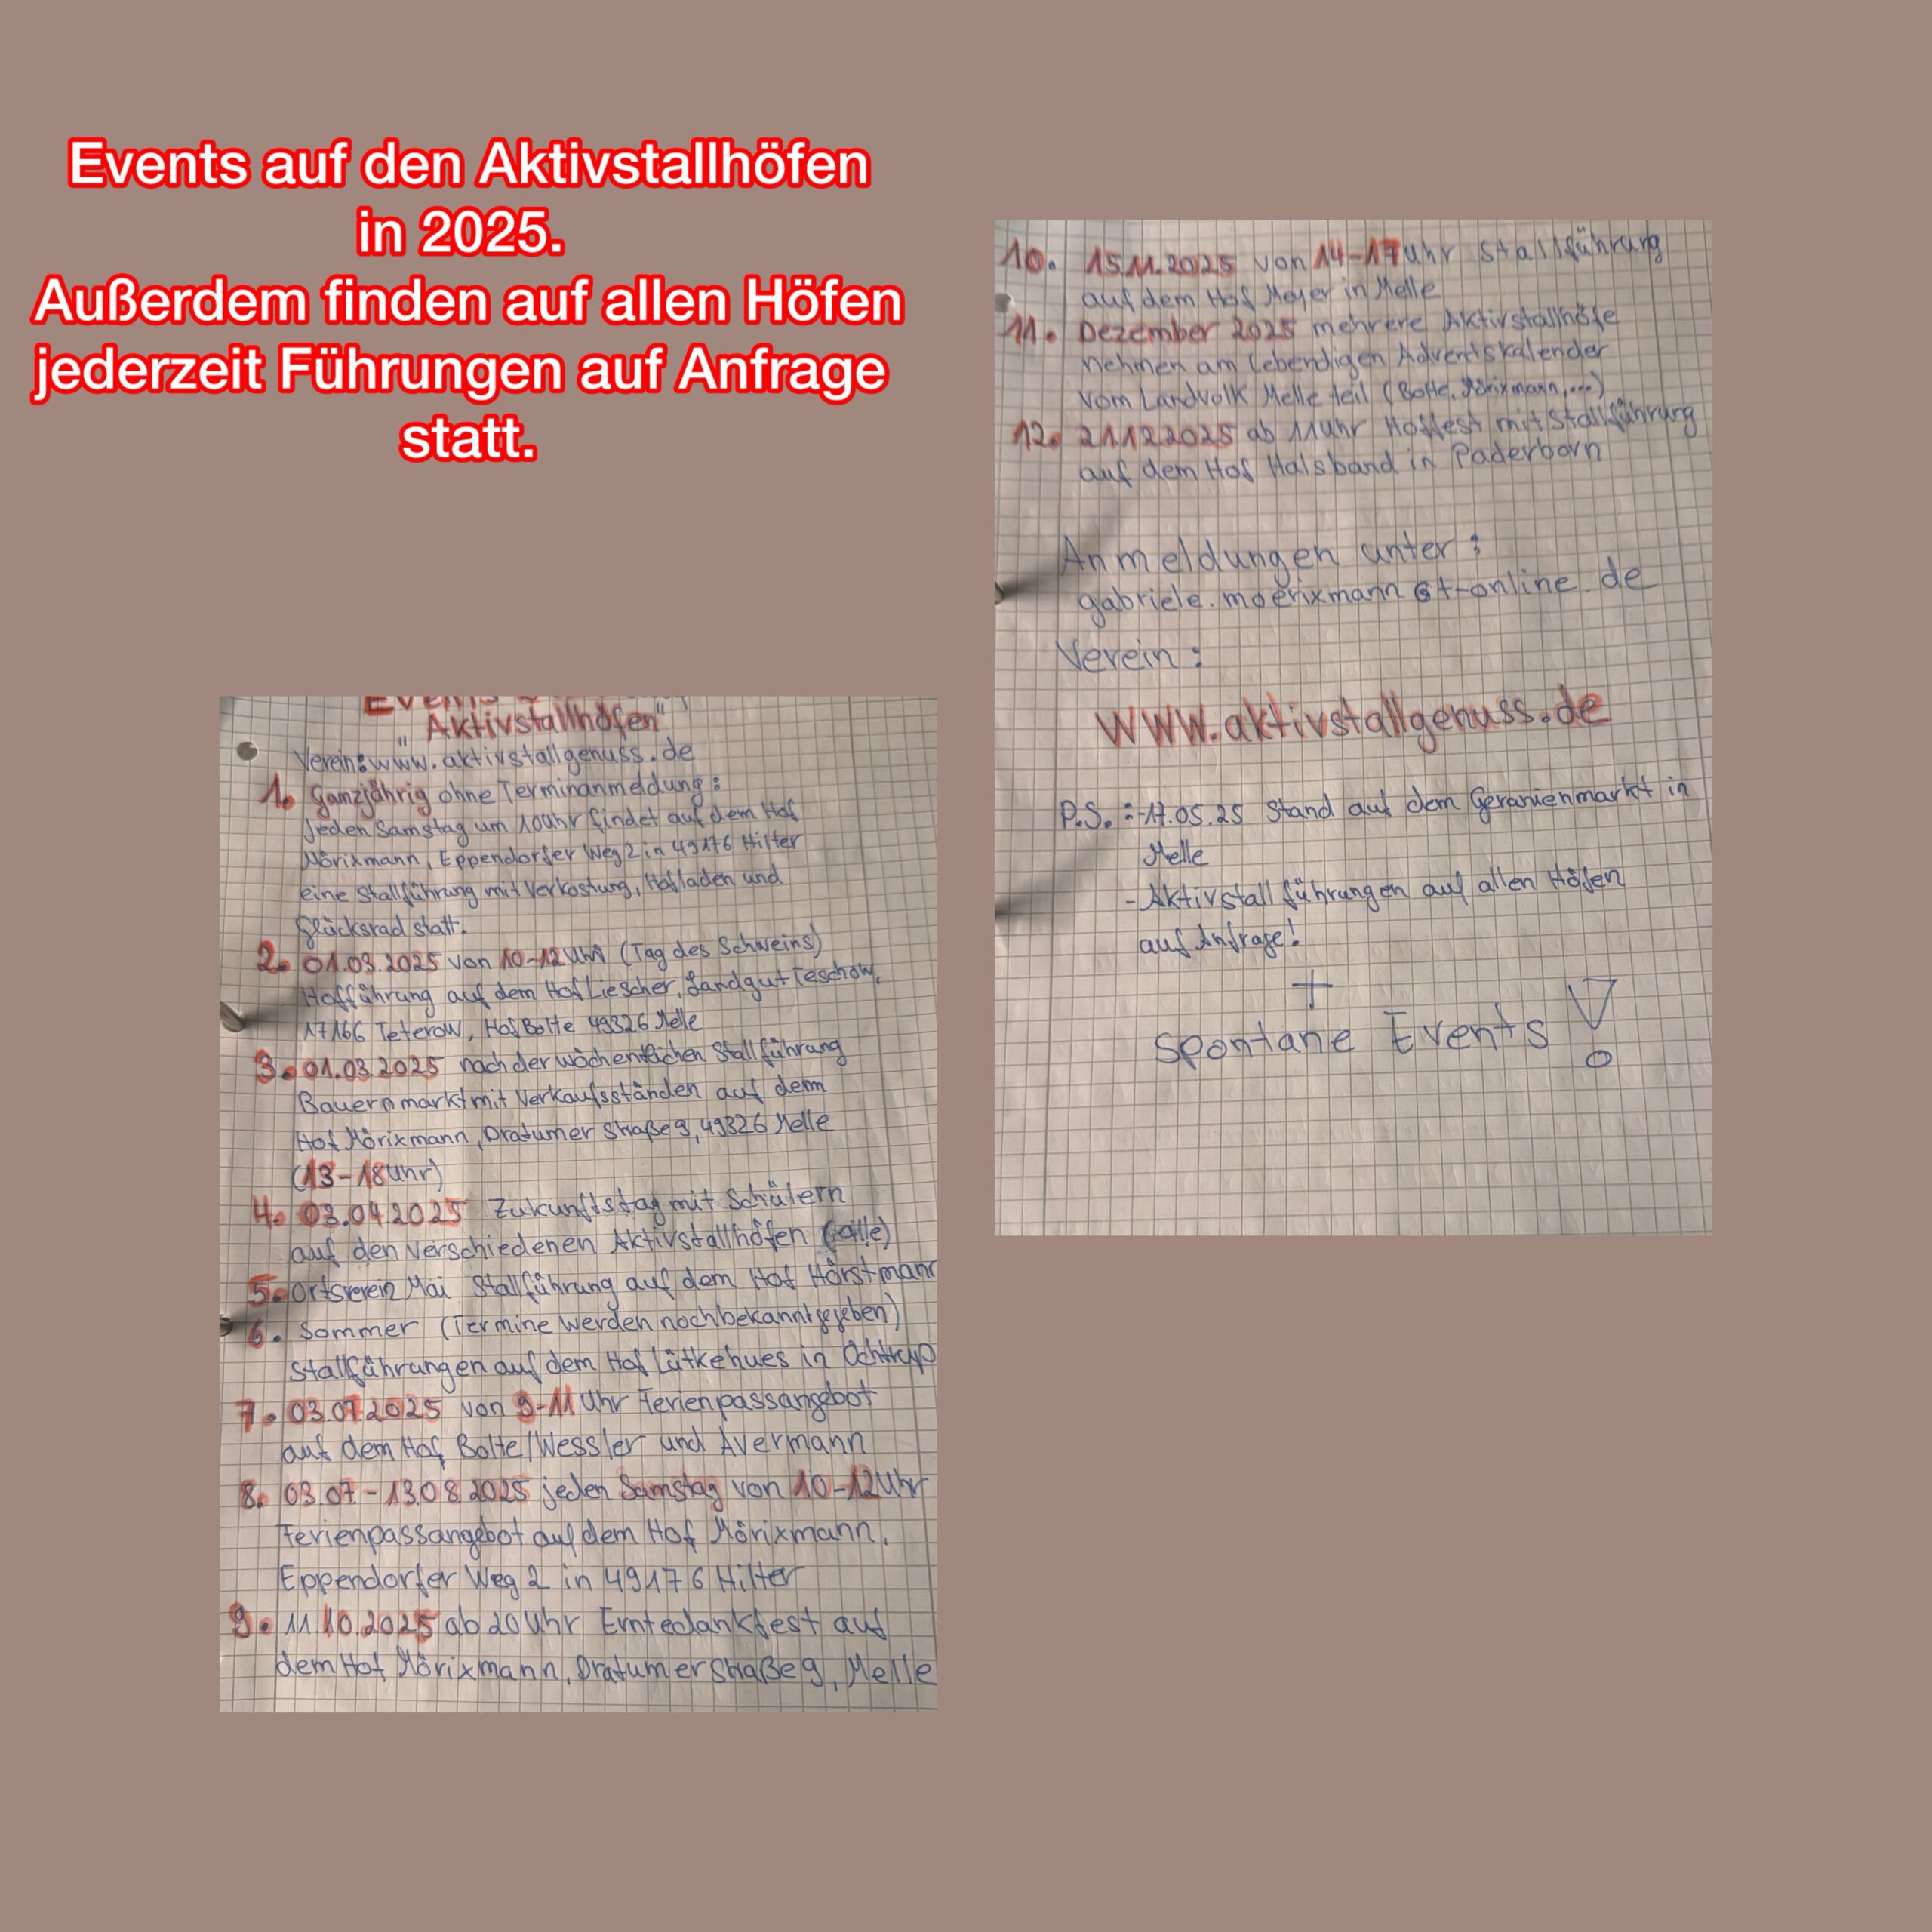 Events auf den Aktivstallhöfen
in 2025.
Außerdem finden auf allen Höfen
jederzeit Führungen auf Anfrage
statt.
"Aktivstallhöfen"
Verein: www.aktivstallgenuss.de
1. Ganzjährig ohne Terminanmeldung:
Jeden Samstag um 10 Uhr findet auf dem Hof
Mörixmann, Eppendorfer Weg 2 in 49176 Hilter
eine Stallführung mit Verkostung, Hofladen und
Glücksrad statt.
2. 01.03.2025 von 10-12 Uhr (Tag des Schweins)
Hofführung auf dem Hof Liescher, Landgut Teschow,
17166 Teterow, Hof Bolte 49326 Melle
3. 01.03.2025 nach der wöchentlichen Stallführung
Bauernmarkt mit Verkaufsständen auf dem
Hof Mörixmann, Dratumer Straße 9, 49326 Melle
(13-18 Uhr)
4. 03.04.2025 Zukunftstag mit Schülern
auf den verschiedenen Aktivstallhöfen (alle)
5. Ortsverein Mai Stallführung auf dem Hof Hörstmann
6. Sommer (Termine werden noch bekanntgegeben)
Stallführungen auf dem Hof Lütkehues in Ochtrup
7. 03.07.2025 von 9-11 Uhr Ferienpassangebot
auf dem Hof Bolte/Wessler und Avermann
8. 03.07-13.08.2025 jeden Samstag von 10-12 Uhr
Ferienpassangebot auf dem Hof Mörixmann,
Eppendorfer Weg 2 in 49176 Hilter
9. 11.10.2025 ab 20 Uhr Erntedankfest auf
dem Hof Mörixmann, Dratumer Straße 9, Melle
10. 15.11.2025 von 14-17 Uhr Stallführung
auf dem Hof Meyer in Melle
11. Dezember 2025 mehrere Aktivstallhöfe
nehmen am lebendigen Adventskalender
vom Landvolk Melle teil (Bolte, Mörixmann,...)
12. 21.12.2025 ab 11 Uhr Hoffest mit Stallführung
auf dem Hof Halsband in Paderborn
Anmeldungen unter:
gabriele.moerixmann@t-online.de
Verein:
www.aktivstallgenuss.de
P.S.: -17.05.25 Stand auf dem Geranienmarkt in
Melle
- Aktivstallführungen auf allen Höfen
auf Anfrage!
+
Spontane Events!